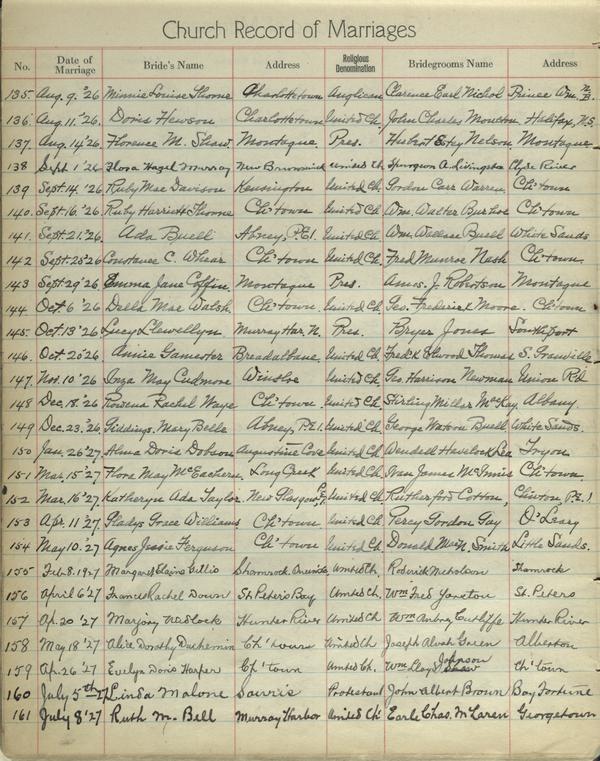 Church Record of Marriages
No. Date of Marriage Bride's Name Address Religious Denomination Bridegrooms Name Address
135. Aug. 9. '26 Minnie Louise Thorne Charlottetown Anglican Clarence Earl Nichol Prince Wm. N.B.
136. Aug. 11. '26 Doris Hewson Charlottetown United Ch. John Charles Moulton Halifax, N.S.
137. Aug. 14 '26 Florence M. Shaw. Montague. Pres. Hubert Nelson, Montague
138 Sept 1 '26 Flora Hazel Murray New Brunswick United Ch Spurgeon A. Livingston Clyde River
139 Sept. 14. '26 Ruby Mae Davison Kensington United Ch. Gordon Carr Warren, Ch'town
140. Sept. 16. '26 Ruby Harriett Thorne Ch'town United Ch. Wm. Walter Burhoe Ch'town
141. Sept. 21. '26. Ada Buell Abney, P.E.I. United Ch. Wm. Wallace Buell White Sands
142 Sept. 25 '26 Constance C. Whear Ch'town United Ch. Fred Munroe Nash Ch'town.
143 Sept. 29 '26 Emma Jane Coffin. Montague Pres. Amos. J. Robertson Montague
144 Oct 6 '26 Della Mae Walsh. Ch'town. United Ch. Geo. Frederick Moore. Ch'town
145. Oct. 13 '26 Lucy Llewellyn Murray Har. N. Pres. Bryer Jones Southport
146. Oct 20 '26 Annie Gamester Breadalbane. United Ch. Fredk Elwood Thomas S. Granville
147. Nov. 10 '26 Inza May Cudmore Winsloe United Ch. Geo. Harrison Newman Union Rd
148 Dec. 18. '26 Rowena Rachel Waye Ch'town United Ch. Stirling Millar McKay. Albany.
149 Dec. 23. 26 Giddings, Mary Belle Abney, P.E.I. United Ch. George Watson Buell White Sands.
150 Jan. 26 '27 Alma Doris Dobson Augustine Cove United Ch. Wendell Havelock Lea Tryon
151 Mar. 15 '27 Flora May McEachern. Long Creek United Ch. Ivan James McInnis Ch'town.
152 Mar. 16 '27. Katheryn Ada Taylor. New Glasgow, United Ch. Rutherford Cotton, Clinton, P.E.I
153 Apr. 11 '27 Gladys Grace Williams Ch'town United Ch Percy Gordon Gay O'Leary
154 May 10. '27 Agnes Jessie Ferguson Ch'town United Ch. Donald MacN. Smith Little Sands.
155 Feb 8. 1927 Margaret Elaine Gillis Shamrock United Ch. Roderick Nicholson Shamrock
156 April 6 '27 Frances Rachel Down St. Peter's Bay United Ch. Wm Fred Yorston St. Peters
157 Ap. 20 '27 Marjory Wadlock Hunter River United Ch. Wm Aubrey Cutliffe Hunter River
158 May 18 '27 Alice Dorothy Duchemin Ch'town United Ch Joseph Alvah Green Alberton
159 Ap. 26 '27 Evelyn Doris Harper Ch'town United Ch. Wm Lloyd Johnson Ch'town
160 July 5th 27 Linda Malone Souris Protestant John Albert Brown Bay Fortune
161 July 8 '27 Ruth M. Bell Murray Harbor United Ch. Earle Chas. McLaren Georgetown